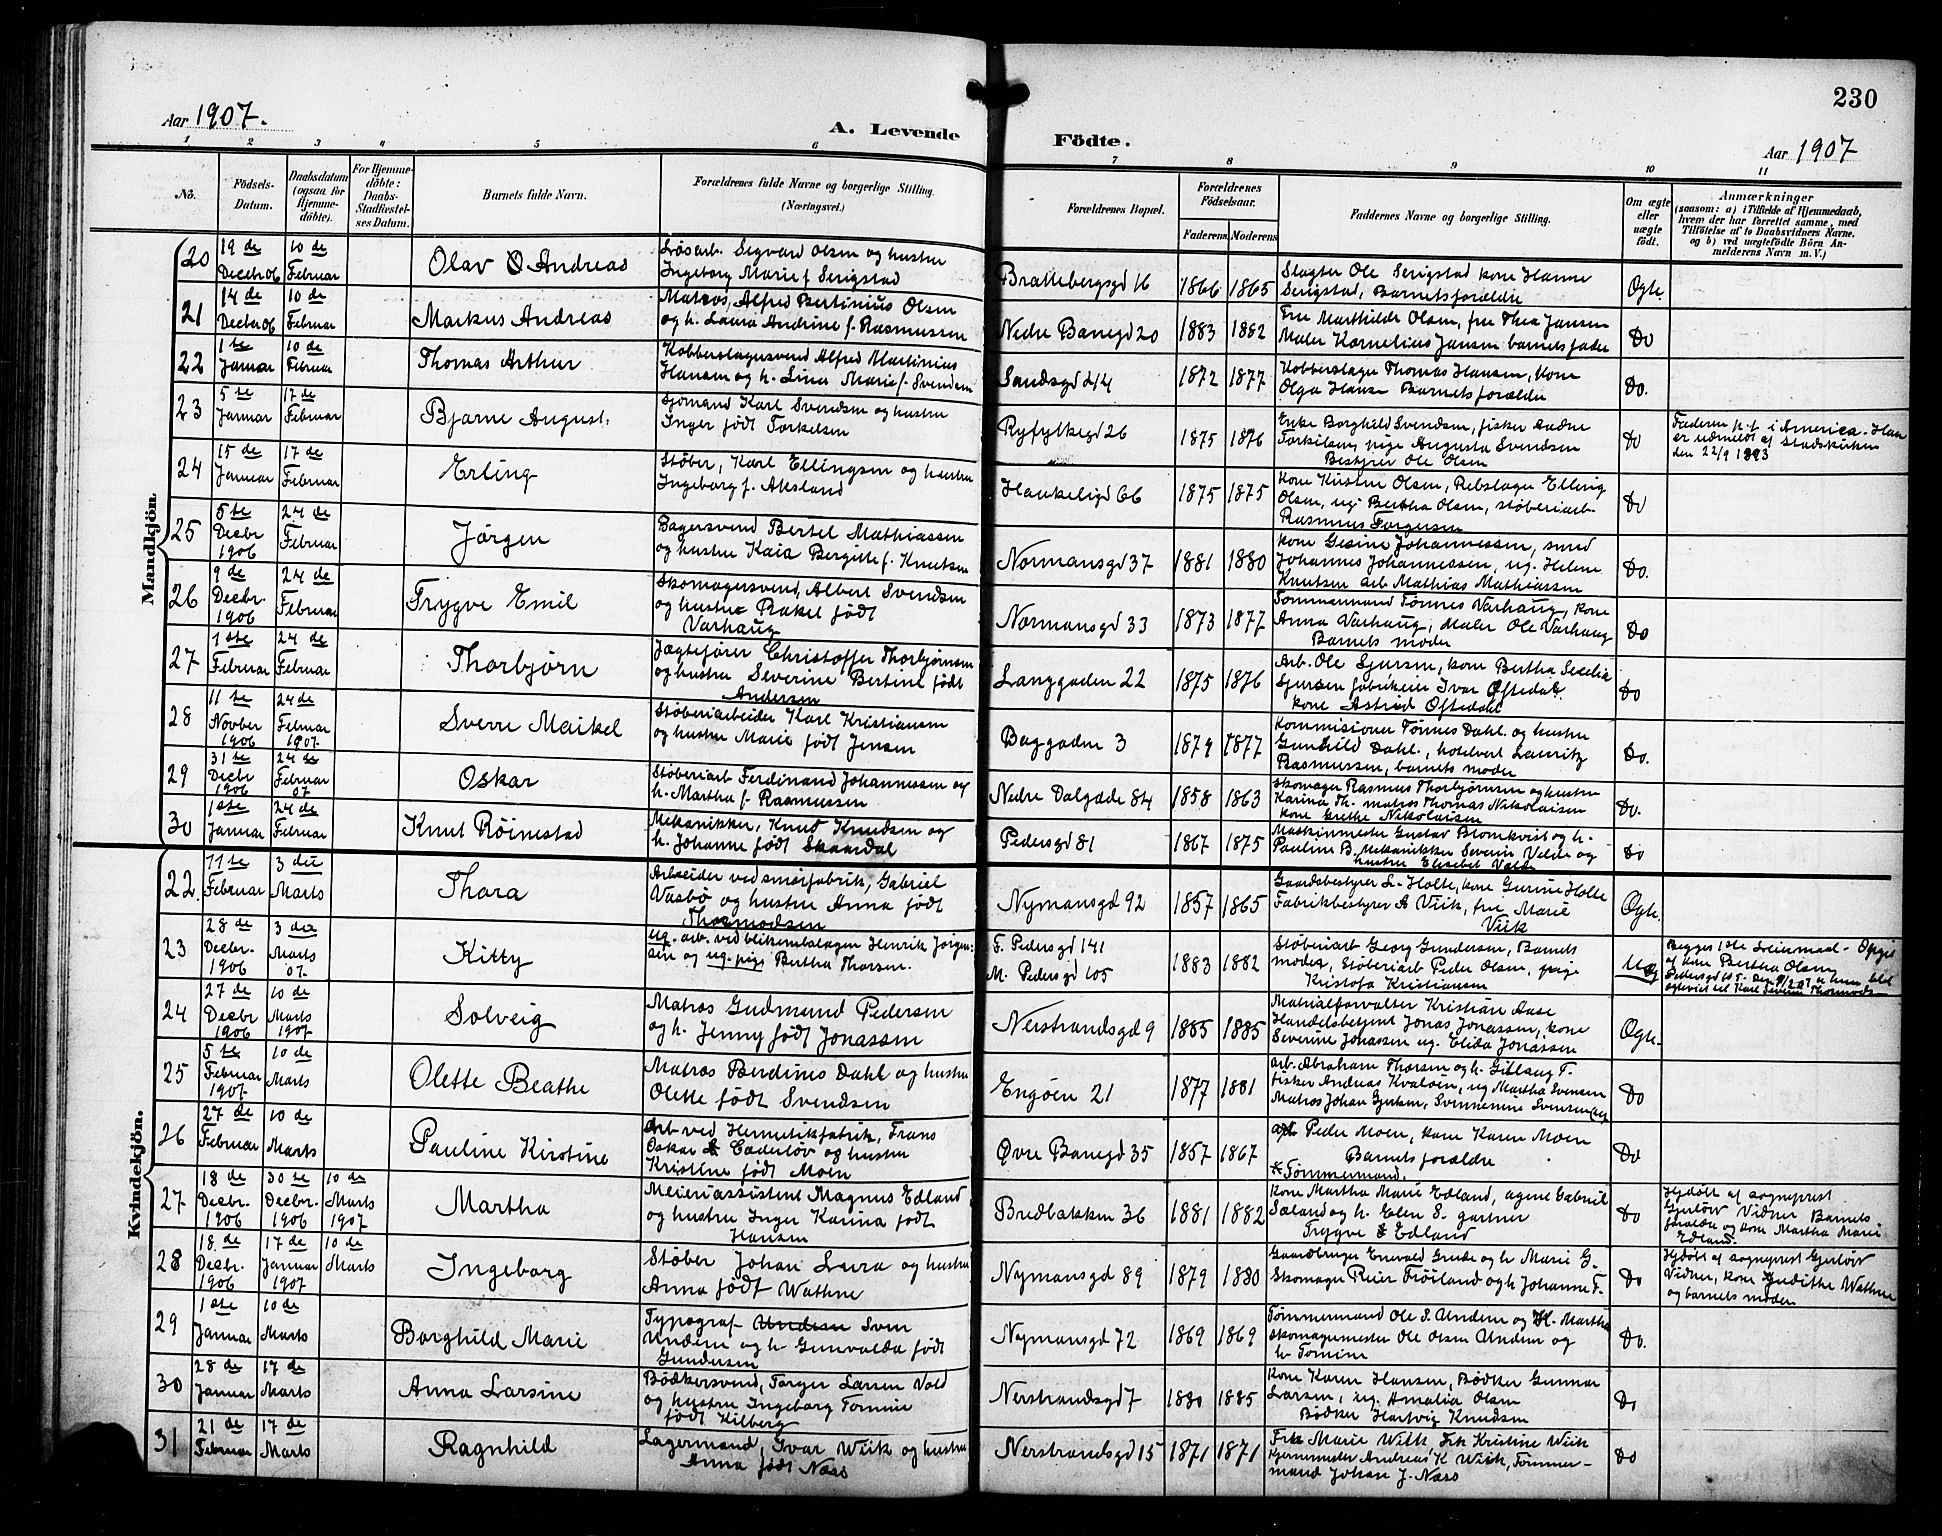 230
Aar 1907.
A. Levende
Födte.
Aar 1907
1 2 3 4 5 6 7 8 9 10 11
No.
Födsels-Datum.
Daabsdatum (ogsaa for Hjemme-döbte).
For Hjemme-döbte: Daabs-Stadfæstel-ses Datum.
Barnets fulde Navn.
Forældrenes fulde Navne og borgerlige Stilling. (Næringsvei.)
Forældrenes Bopæl.
Forældrenes Födselsaar.
Faderens. Moderens.
Faddernes Navne og borgerlige Stilling.
Om ægte eller uægte født.
Anmærkninger (saasom: a) i Tilfælde af Hjemmedaab, hvem der har forrettet samme, med Tilføielse af to Daabsvidners Navne, og b) ved uægtefödte Börn An-melderens Navn m. V.)
Mandkjön.
20 19 de Decbr 06 10 de Februar Olav O Andreas Løsarb. Sigvard Olsen og hustru Ingeborg Marie f. Serigstad Brattebergsgd 16 1866 1865 Slagter Ole Serigstad kone Hanne Serigstad, Barnets forældre Ægte.
21 14 de Decbr 06 10 de Februar Markus Andreas Matros, Alfred Bertinius Olsen og h. Laura Andrine f. Rasmussen Nedre Banegd 20 1883 1882 Frue Marthilde Olsen, frue Thea Jansen Maler Kornelius Jansen barnets fader Do
22 1ste Januar 10 de Februar Thomas Arthur Kobberslagersvend Alfred Martinius Hansen og h. Lina Marie f. Svendsen Sandsgd 44 1872 1877 Kobberslager Thomas Hansen, kone Olga Hansen Barnets forældre Do.
23 5te Januar 17 de Februar Bjarne August. Sjømand Karl Svendsen og hustru Inger født Torkelsen Ryfylkegd 26 1875 1876 Enke Borghild Svendsen, fisker Andre Torkilsen, pige Augusta Svendsen Bestyrer Ole Olsen Do Faderen p.t. i America. Han er udmeldt af Stadskirken den 22/9 1893
24 15 de Januar 17 de Februar Erling Støber, Karl Ellingsen og hustru Ingeborg f. Aksland Haukeligd 66 1875 1875 Kone Kristine Olsen, Rebslager Elling Olsen, ug. Bertha Olsen, støberiarb. Rasmus Torgersen Do
25 5te Decbr 1906 24 de Februar Jørgen Bagersvend Bertel Mathiassen og hustru Kaia Bergitte f. Knutsen Normansgd 37 1881 1880 Kone Gesine Johannessen, smed Johannes Johannessen, ug. Helene Knutsen arb. Mathias Mathiassen Do.
26 9 de Decbr. 1906 24 de Februar Trygve Emil Skomagersvend, Albert Svendsen og hustru Rakel født Varhaug Normansgd 33 1873 1877 Tømmermand Tønnes Varhaug, kone Anna Varhaug, Maler Ole Varhaug Barnets moder Do
27 1ste Februar 24 de Februar Thorbjørn Jægtefører Christoffer Thorbjørnsen og hustru Severine Bertine født Andersen Langgaden 22 1875 1876 Arb. Ole Sjursen, kone Bertha Secelia Sjursen fabrikeier Ivar Oftedal kone Astrid Oftedal Do
28 11te Novber 1906 24 de Februar 1907. Sverre Maikel Støberiarbeider Karl Kristiansen og hustru Marie født Jensen Baggaden 3 1879 1877 Kommisioner Tønnes Dahl og hustru Gunhild Dahl, hotelvert Lauritz Rasmussen, barnets moder Do.
29 31te Decbr 1906 24 de Februar 07 Oskar Støberiarb Ferdinand Johannessen og h. Martha f. Rasmussen Nedre Dalgade 84 1858 1863 Skomager Rasmus Thorbjørnsen og hustru Karina Th. matros Thomas Nikolaisen kone Grethe Nikolaisen Do.
30 1ste Januar 24 de Februar Knut Røinestad Mekanikker, Knud Knudsen og h. Johanne født Skaardal Pedersgd 81 1867 1875 Maskinmester Gustav Blomkvist og h. Pauline B. Mekanikker Severin Velde og hustru Elisebet Velde Do
Kvindekjön.
22. 11te Februar 3 die Marts Thora Arbeider ved smørfabrik, Gabriel Vasbø og hustru Anna født Thormodsen Nymansgd 92 1857 1865 Gaardsbestyrer L. Holte, kone Gurine Holte Fabrikbestyrer A Viik, frue Marie Viik Ægte.
23 28 de Decbr. 1906 3 die Marts 07. Kitty Ug. arb. ved blikemballagen Henrik Jørgensen og ug. pige Bertha Thorsen. F. Pedersgd 141 M. Pedersgd 105 1883 1882 Støberiarb Georg Gundersen, Barnets moder, Støberiarb Peder Olsen, pige Kristofa Kristiansen Uæg Begges 1ste Leiermaal. Opgit af kone Bertha Olsen Pedersgd 105.
24 27 de Decbr 1906 10 de Marts 1907 Solveig Matros Gudmund Pedersen og h. Jenny født Jonassen Nerstrandsgd 9 1885 1885 Matrialforvalter Kristian Aase Handelsbetjent Jonas Jonassen, kone Severine Johassen ug. Elida Jonassen Ægte.
25 5te Februar 1907 10 de Marts Olette Beathe Matros Berdines Dahl og hustru Olette født Svendsen Engøen 21 1877 1881 arb. Abraham Thorsen og h. Gitlaug T. fisker Andreas Kvaløen, ug Martha Svensen Matros Johan Gjertsen, Svennenine Svensen (ug) Do
26 27 de Februar 10 de Marts Pauline Kirstine Arb ved Hermetikfabrik, Frans Oskar Cederløv og hustru Kristine født Moen Øvre Banegd 35 1857 1867 * Peder Moen, kone Karen Moen Barnets forældre * Tømmermand. Do
27 18 de Decbr. 1906 30 te Decbr. 1906 10 de Marts 1907 Martha Meieriassistent Magnus Edland og hustru Inger Karina født Hansen Bredbakken 36 1881 1882 Kone Martha Marie Edland, agent Gabriel Sæland og h. Elen S. gartner Trygve Edland Do Hjdøbt af sogneprest Gjerløv Vidner Barnets forældre og kone Martha Marie Edland.
28 18 de Decbr. 1906 17 de Januar 1907 10 de Marts Ingeborg Støber Johan Lura og hustru Anna født Wathne Nymansgd 89 1879 1880 Gaardbruger Enevald Grude og h. Marie G. Skomager Peier Frøiland og h Johanne F. Do Hjdøbt af sogneprest Gjerløv Vidner, kone Judithe Wathne og barnets moder
29 1ste Januar 10 de Marts Borghild Marie Typograf Undem Sven Undem og h Gunvalda født Gundersen Nymansgd 72 1869 1869 Tømmermand Ole S. Undem og H. Martha Skomagermester Ole Olsen Undem og h. Tomine Do.
30 28 de Januar 17 de Marts Anna Larsine Bødkersvend, Torger Larsen Vold og hustru Ingeborg Tomine født Kilberg Nerstrandsgd 7 1880 1885 Kone Karen Hansen, Bødker Gunnar Larsen, ug. Amalia Olsen Bødker Hartvig Knudsen Do
31 21 de Februar 17 de Marts Ragnhild Lagermand, Ivar Wiik og hustru Anna født Næss Nerstrandsgd 15 1871 1871 Frk Marie Wiik, Frk Kristine Wiik Andreas K Wiik, Tømmermand Johan J. Næss Do